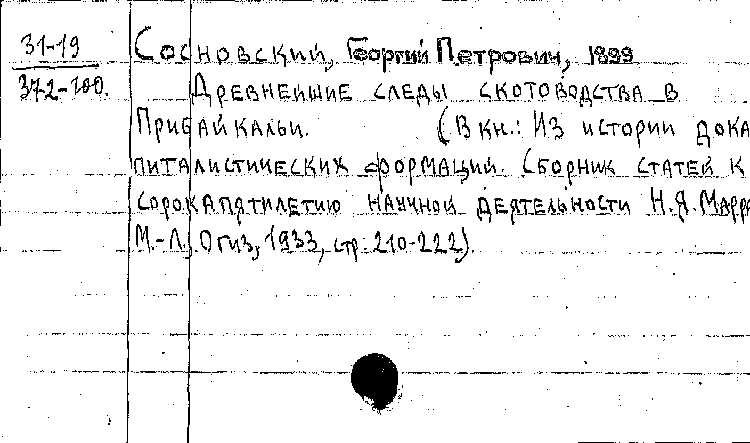 31-19
372-100.
Сосновский, Георгий Петрович, 1899
Древнейшие следы скотоводства в
Прибайкальи. (В кн.: Из истории дока
питалистических формаций. Сборник статей к
сорокапятилетию научной деятельности Н.Я. Марра
М.-Л., Огиз, 1933, стр. 210-222).